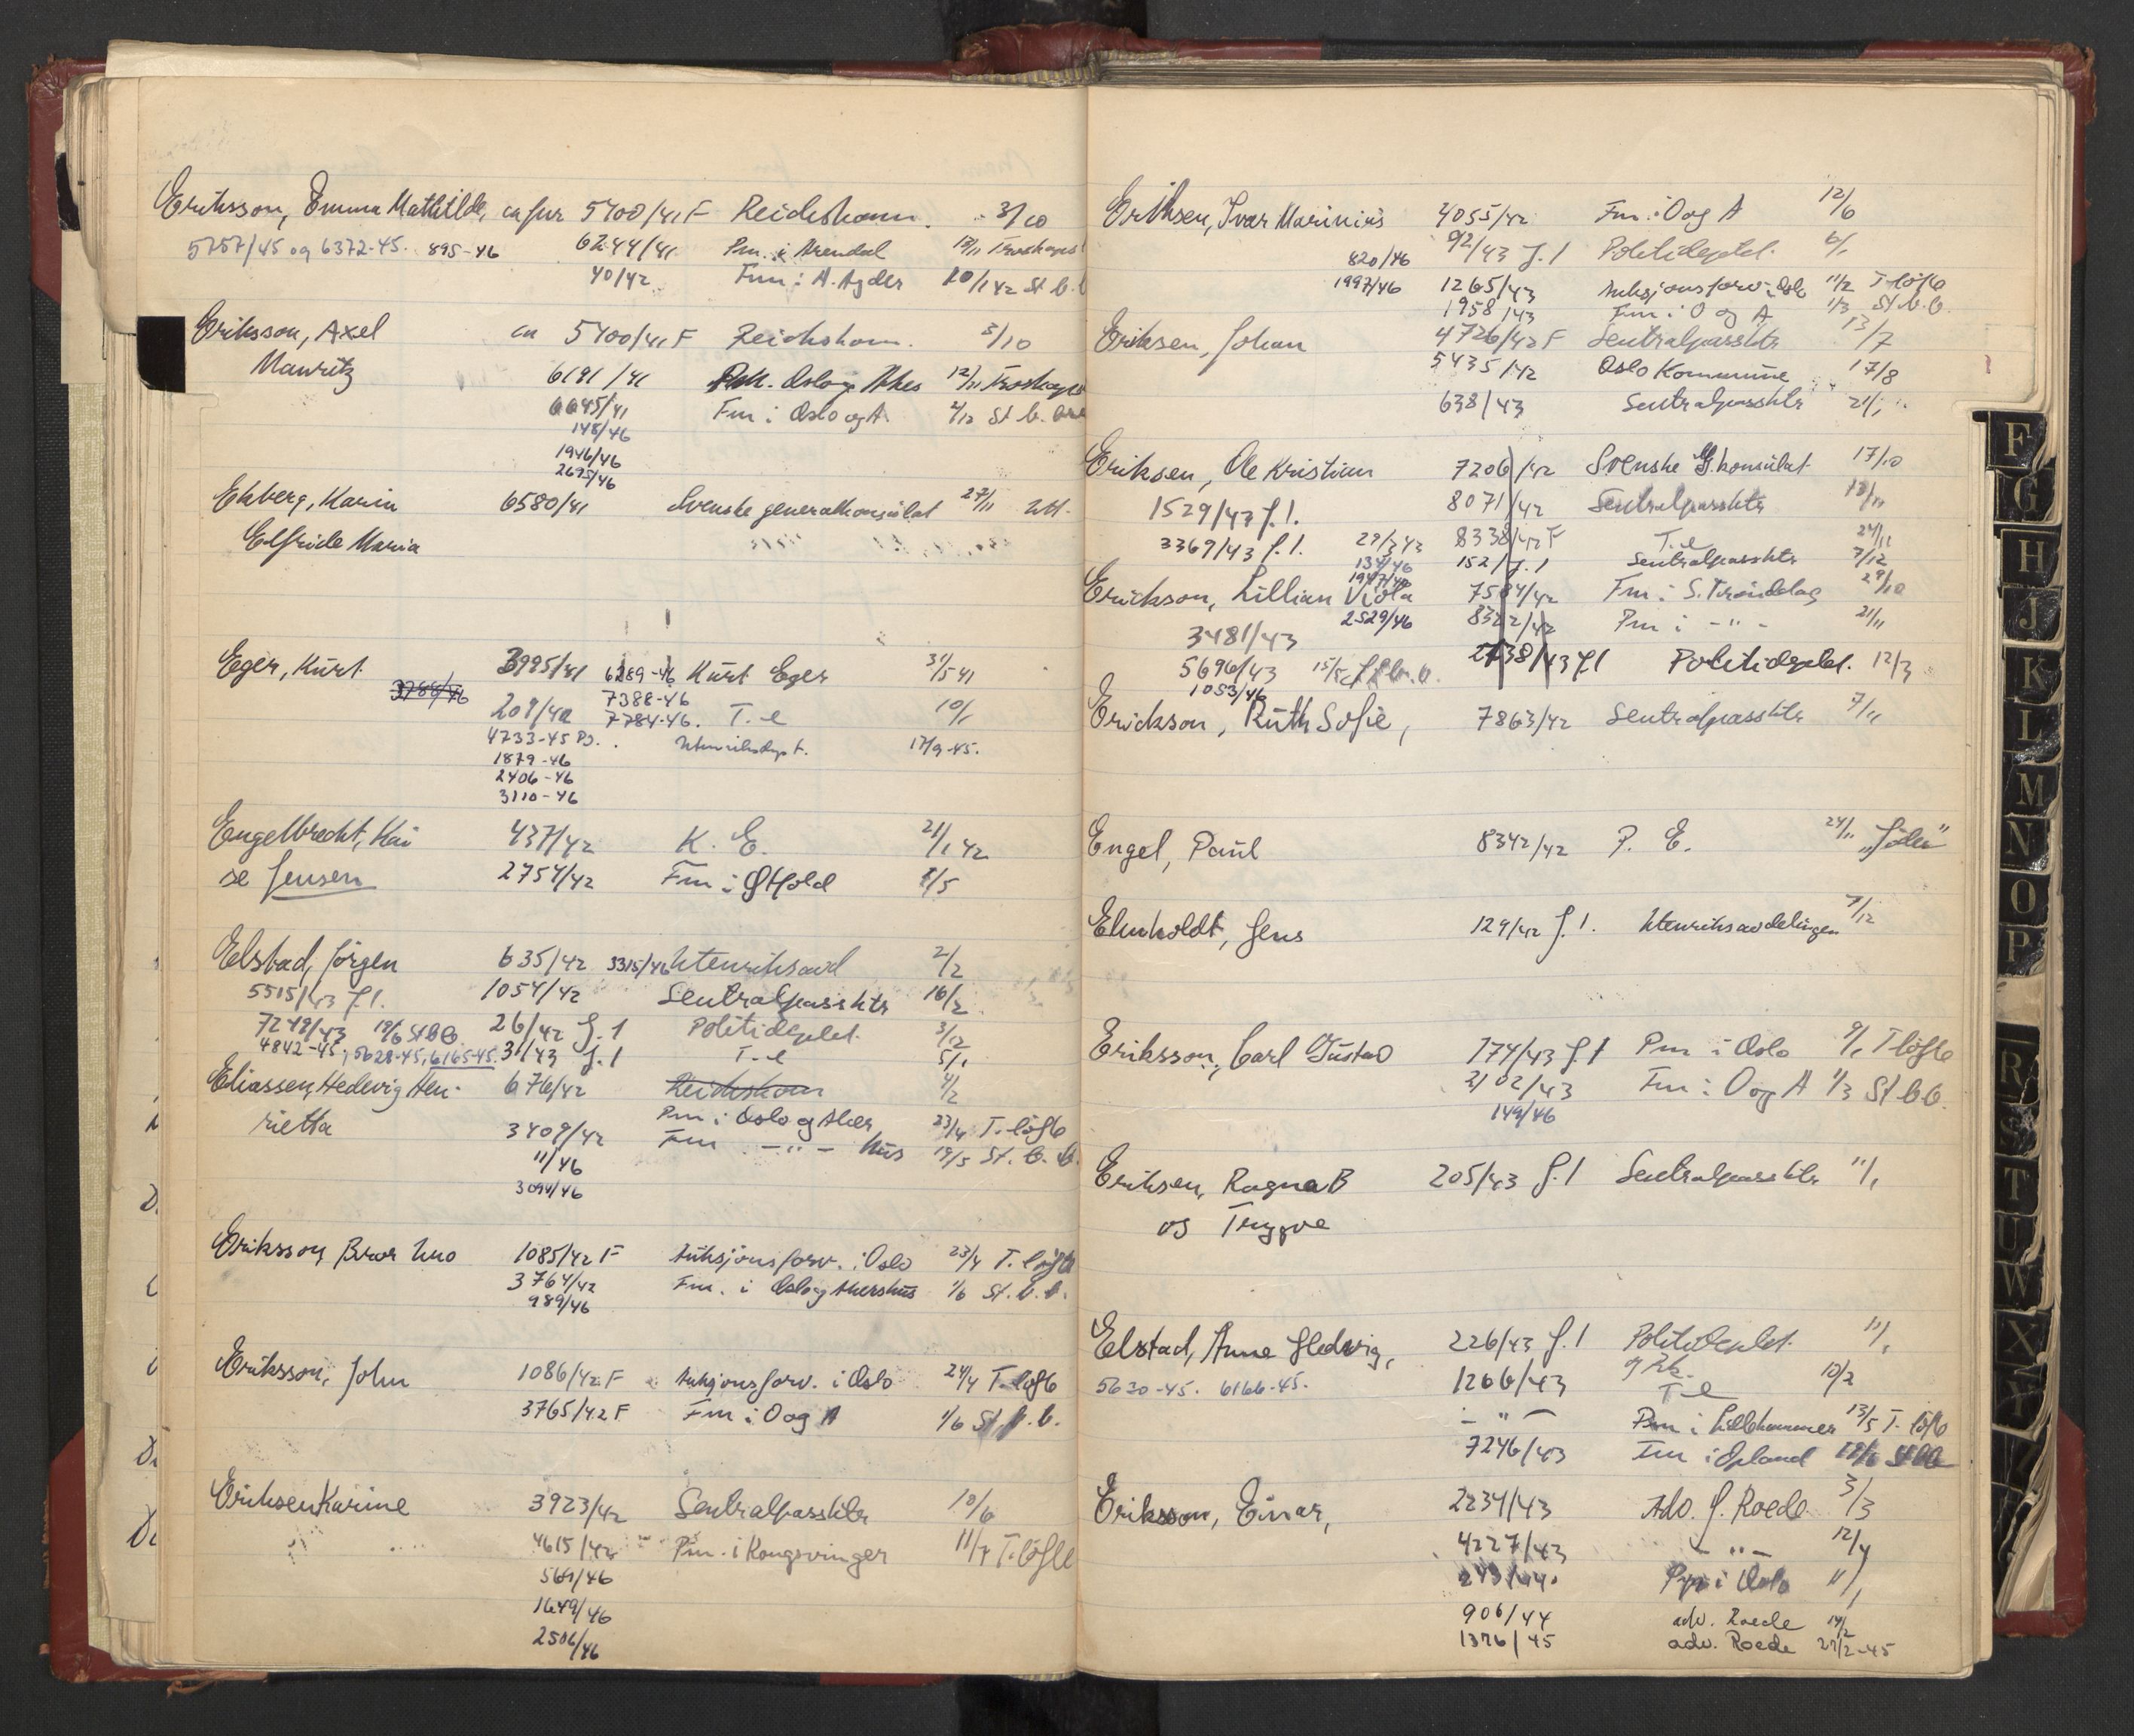 Eriksson, Emma Mathilde, ca fnr 5700/41 F Reichskom. 3/10
5757/45 og 6372-45. 895-46 6244/41 Pm. i Arendal 13/11
40/42 Fm i A. Agder 20/1 42 St. b.
Eriksson, Axel ca 5700/41 F Reichskom. 3/10
Mauritz 6191/41 Pm. Oslo og Akes 12/11
6645/41 Fm i Oslo og A. 2/12 St. b.
148/46
1946/46
2695/46
Ekberg, Karin 6580/41 Svenske generalkonsulat 27/11 utl.
Elfride Maria
Eger, Kurt 3995/41 6289-46 Kurt Eger 31/5 41
3788/46 209/42 7388-46 T. e 10/1
7784-46.
4733-45 Pj. Utenriksdept. 17/9-45.
1879-46
2406-46
3110-46
Engelbrecht, Kai 437/42 K. E. 21/1 42
se Jensen 2754/42 Fm i Østfold 1/5
Elstad, Jörgen 635/42 3315/46 Utenriksavd 2/2
5515/43 J.l. 1054/42 Sentralpassktr 16/2
7249/43 19/6 St BB 26/42 J. l Politidepdet. 3/12
4842-45, 5628-45, 6165-45. 31/43 J. l T. e 5/1
Eliassen, Hedevig Hen- 676/42 Reichskom 4/2
rietta Pm i Oslo og Aker 23/4 T. löfte
3409/42 Fm -"- hus 19/5 St. b. b.
11/46
3094/46
Eriksson, Bror Uno 1085/42 F Auksjonsforv. i Oslo 23/4 T. löfte
3764/42 Fm. i Oslo og Akershus 1/6 St. b. b.
989/46
Eriksson, John 1086/42 F Auksjonsforv. i Oslo 24/4 T. löfte
3765/42 F Fm i O og A 1/6 St. b. b.
Eriksen Karine 3923/42 Sentralpassktr 10/6
4615/42 Pm. i Kongsvinger 11/7 T. löfte
561/46
1649/46
2506/46
Eriksen, Ivar Marinius 4055/42 Fm. i O og A 12/6
820/46 92/43 J. l Politidepdet. 6/1
1997/46 1265/43 Auksjonsforv. i Oslo 11/2 T. löfte
1958/43 Fm i O og A 1/3 St. b. b.
Eriksen, Johan 4726/42 F Sentralpassktr 13/7
5435/42 Oslo Kommune 17/8
638/43 Sentralpassktr 21/1
Eriksen, Ole Kristian 7206/42 Svenske G. konsulat 17/10
1529/43 J. l. 8071/42 Sentralpassktr 13/11
3369/43 J. l. 29/3 43 8338/42 F T. e 24/11
134/46 152/J. l Sentralpassktr 7/12
1947/46
Erickson, Lillian Viola 7584/42 Fm i S. Tröndelag 29/10
2529/46 8322/42 Pm i -"- 21/11
3481/43
5696/43 15/5 St. b. b. 2138/43 J l Politidepdet. 12/3
1053/46
Erickson, Ruth Sofie, 7863/42 Sentralpassktr 7/11
Engel, Paul 8342/42 P. E. 24/11 "Jöde"
Elmholdt, Jens 129/42 J. l. Utenriksavdelingen 7/12
Eriksson, Carl Gustav 174/43 J. l Pm i Oslo 9/1 T löfte
2102/43 Fm i O og A 1/3 St b b.
149/46
Eriksen, Ragna B 205/43 J. l Sentralpassktr 11/1
og Trygve
Elstad, Anne Hedvig, 226/43 J. l Politidepdet. 11/1
5630-45. 6166-45. 1266/43 T e 10/2
- " - Pm i Lillehammer 13/5 T. löfte
7246/43 Fm i Opland 19/6 St BB
Eriksson, Einar, 2234/43 Adv. J. Roede 3/3
4227/43 - " - 12/4
243/44 Pm i Oslo 11/1
906/44 adv. Roede 14/2
1376/45 adv. Roede 27/2-45
F
G
H
J
K
L
M
N
O
P
R
S
T
U
W
X
Y